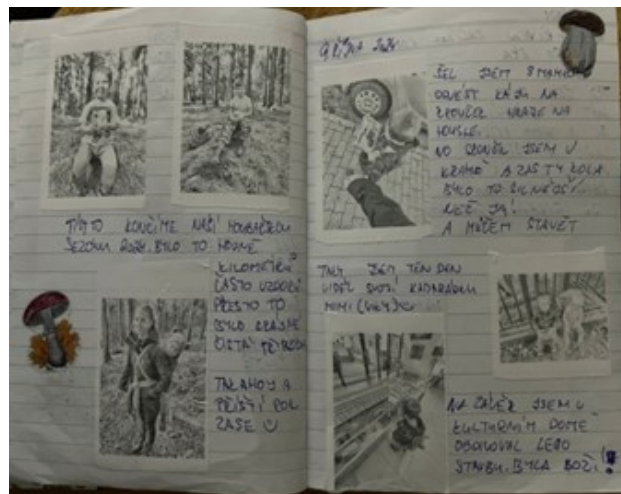 TÍMTO KONČÍME NAŠÍ HOUBAŘSKOU
SEZÓNU 2024. BYLO TO HODNĚ
KILOMETRŮ
ČASTO
PŘESTO TO
BYLO KRÁSNĚ
ČISTÁ
TAK AHOJ A
PŘÍŠTÍ ROK
ZASE
ŘÍJNA 2024
ŠEL JSEM S MAMKOU
ODVÉST NA
ZKOUŠKU NA
HOUSLE.
NO SKONČIL JSEM U
KRÁMŮ A ZAS TY KOLA
BYLO TO SILNĚJŠÍ
NEŽ JÁ!
A MŮŽEM STAVĚT
TAKY JSEM TEN DEN
VIDĚL KAMARÁDKU
MIMI
NA ZÁVĚR JSEM V
KULTURNÍM DOMĚ
OBDIVOVAL LEGO
STAVBU. BYLA BOŽÍ!